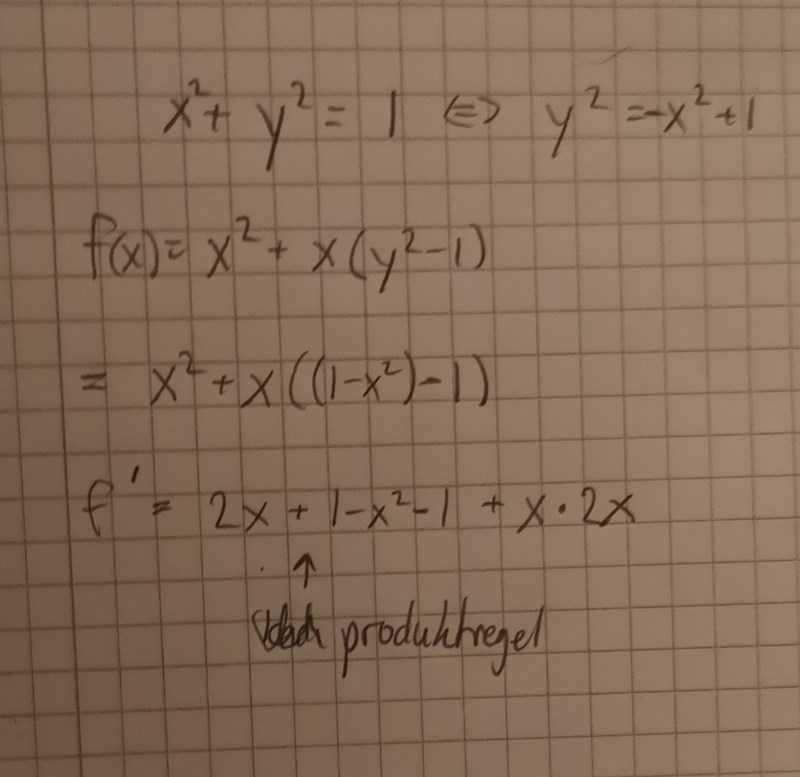 x² + y² = 1 ⇔ y² = -x² + 1
f(x) = x² + x(y² - 1)
= x² + x((1 - x²) - 1)
f' = 2x + 1 - x² - 1 + x · 2x
↑
produktregel